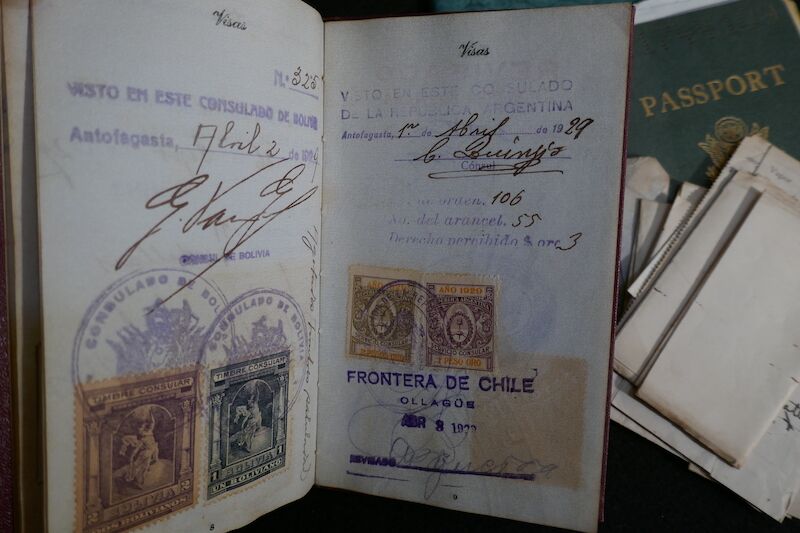 Visas
N.º 325
VISTO EN ESTE CONSULADO DE BOLIVIA
Antofagasta, Abril 2 de 1929
CONSUL DE BOLIVIA
CONSULADO DE BOLIVIA
CONSULADO DE BOLIVIA
TIMBRE CONSULAR
BOLIVIA
2 DOS BOLIVIANOS 2
TIMBRE CONSULAR
BOLIVIA
1 UN BOLIVIANO 1
8
Visas
VISTO EN ESTE CONSULADO
DE LA REPUBLICA ARGENTINA
Antofagasta, 1º de Abril de 1929
Cónsul
orden. 106
No. del arancel. 55
Derecho percibido $ oro 3
AÑO
AÑO 1929
REPUBLICA ARGENTINA
SERVICIO CONSULAR
1 PESO ORO
FRONTERA DE CHILE
OLLAGÜE
ABR 3 1929
REVISADO
9
PASSPORT